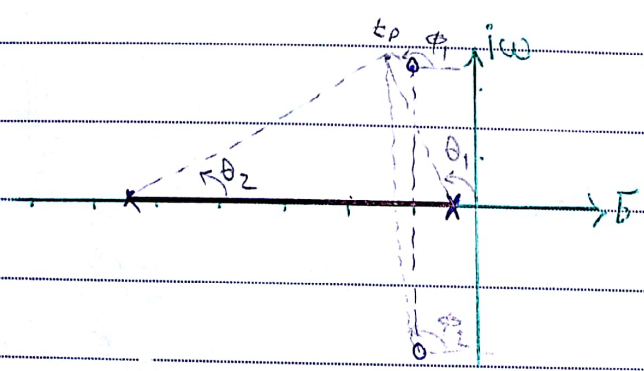 tp
ϕ₁
iω
θ₁
θ₂
σ
ϕ₂